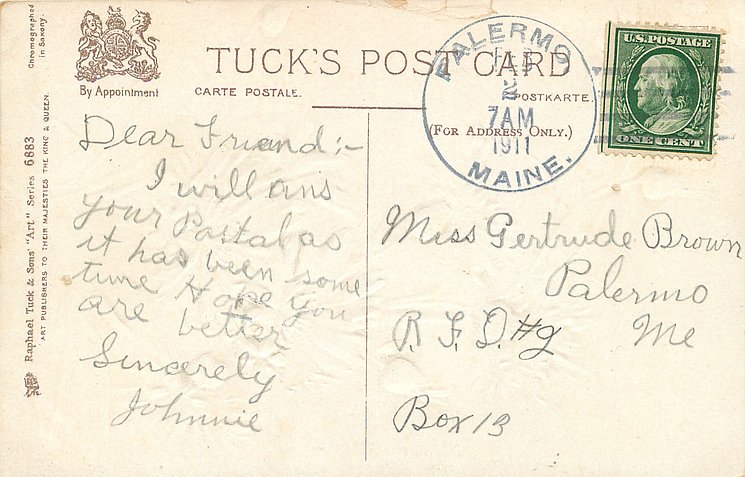 Chromographed
in Saxony.
By Appointment
TUCK'S POST CARD
CARTE POSTALE.
POSTKARTE.
(FOR ADDRESS ONLY.)
PALERMO
FEB
2
7AM
1911
MAINE.
U.S. POSTAGE
ONE CENT
Raphael Tuck & Sons' "Art" Series 6883
ART PUBLISHERS TO THEIR MAJESTIES THE KING & QUEEN.
Dear Friend:-
I will ans
your Postal as
it has been some
time Hope you
are better
Sincerely
Johnnie
Miss Gertrude Brown
Palermo
R. F. D. #2 Me
Box 13